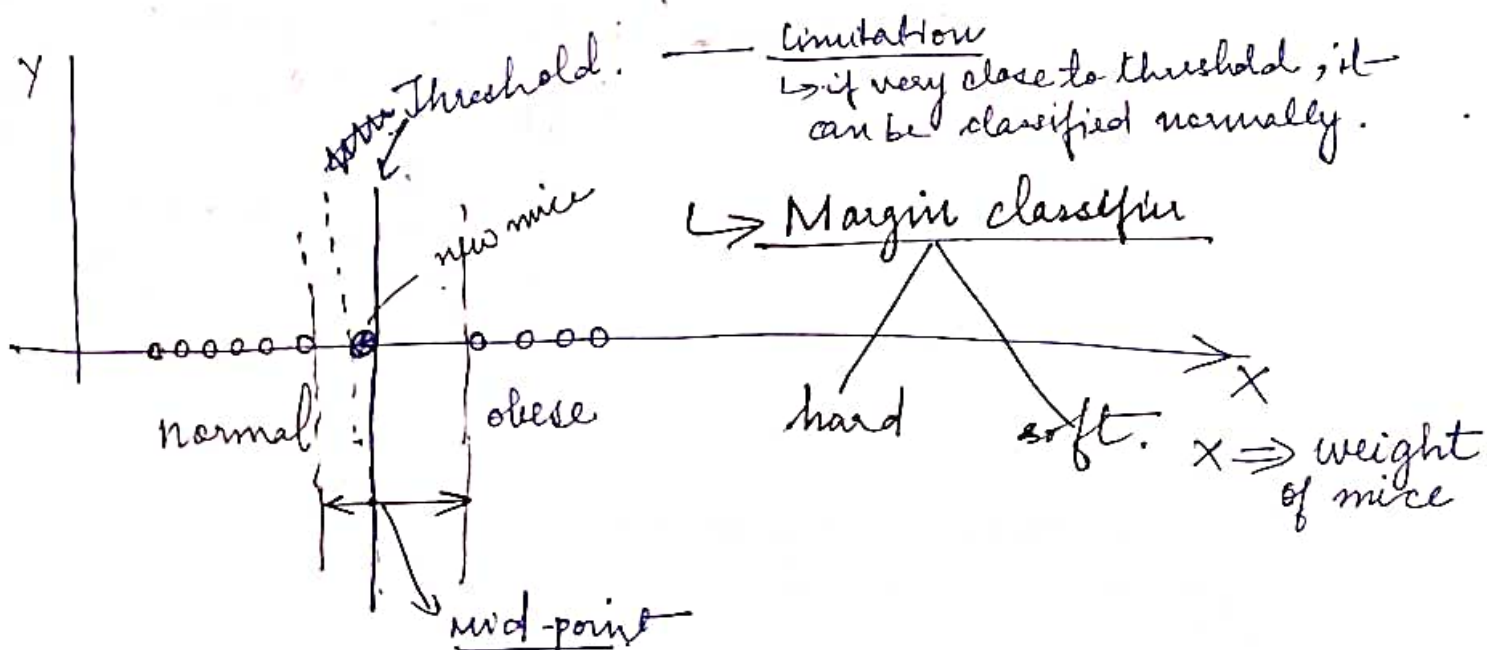 Y
Threshold. — Limitation
↳ if very close to threshold, it
can be classified normally.
new mice
↳ Margin classifier
normal
obese
hard
soft.
X
X ⇒ weight
of mice
mid-point